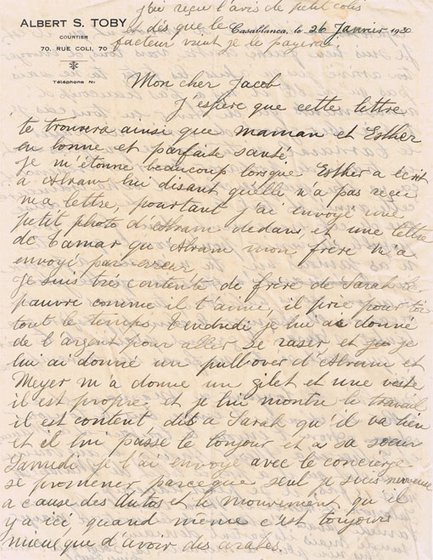 j'ai reçu l'avis de petit colis
et dis que le
facteur vient je le payerai
ALBERT S. TOBY
COURTIER
70, RUE COLI, 70
Téléphone N°
Casablanca, le 26 Janvier 1930
Mon cher Jacob
J'espère que cette lettre
te trouvera ainsi que maman et Esther
en bonne et parfaite santé.
Je m'étonne beaucoup lorsque Esther a écrit
a Abram lui disant qu'elle n'a pas reçu
ma lettre, pourtant j'ai envoyé une
petit photo d'Abram dedans et une lettre
de Tamar qu'Abram mon frère n'a
envoyé par erreur
Je suis très contente de frère de Sarah
pauvre comme il t'aime, il prie pour toi
tout le temps. Vendredi je lui ai donné
de l'argent pour aller se raser et puis je
lui ai donné un pullover d'Abram et
Meyer m'a donné un gilet et une veste
il est propre. et je lui montre le travail
il est content, dit a Sarah qu'il va bien
et el lui passe le bonjour et a sa soeur
Samedi je l'ai envoyé avec le concierge
se promener parceque seul je suis
a cause des autos et le mouvement qu'il
y a ici quand meme c'est toujours
mieux que d'avoir des arabes.